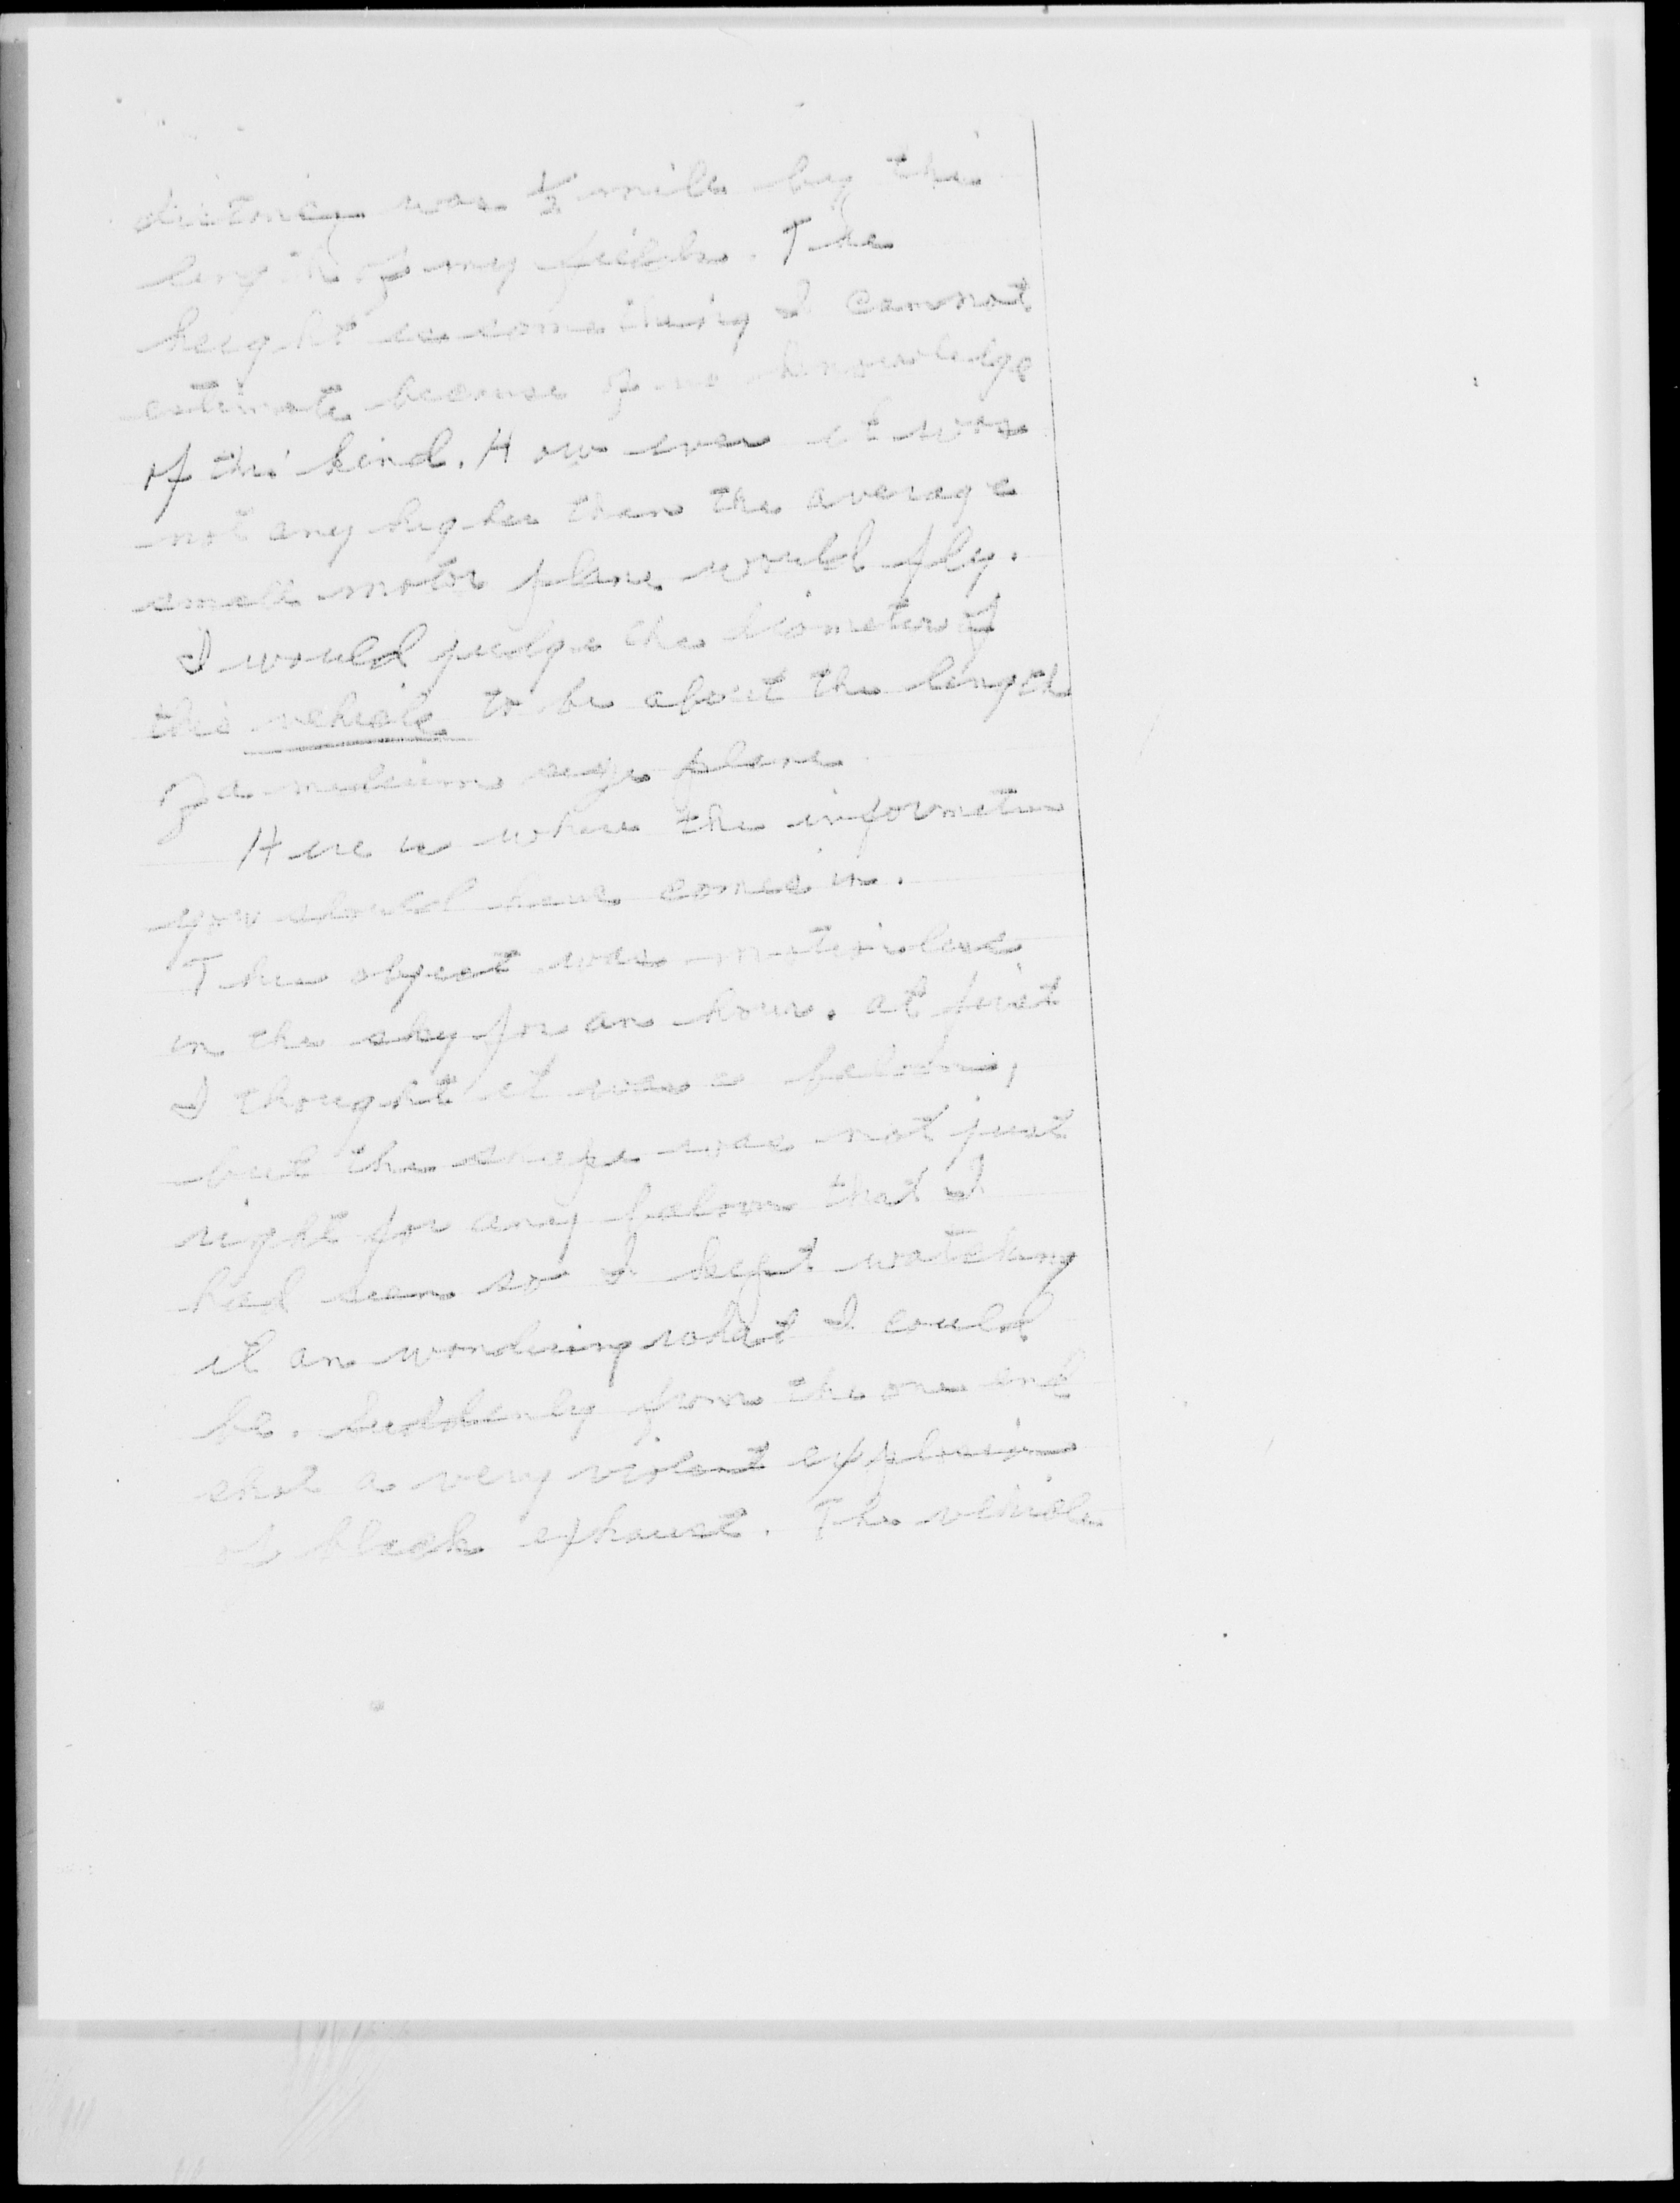 distency was 1/2 mile by the
length of my fields. The
height is something I cannot
estimate because of no knowledge
of this kind. How ever it was
not any higher than the average
small motor plane would fly.
I would judge the diameter of
this vehicle to be about the length
of a medium size plane
Here is where the information
you should have comes in.
The object was motionless
in the sky for an hour. at first
I thought it was a baloon,
but the shape was not just
right for any baloon that I
had seen so I kept watching
it an wondering what I could
be. Suddenly from the one end
shot a very violent explosion
of black exhaust. The vehicle